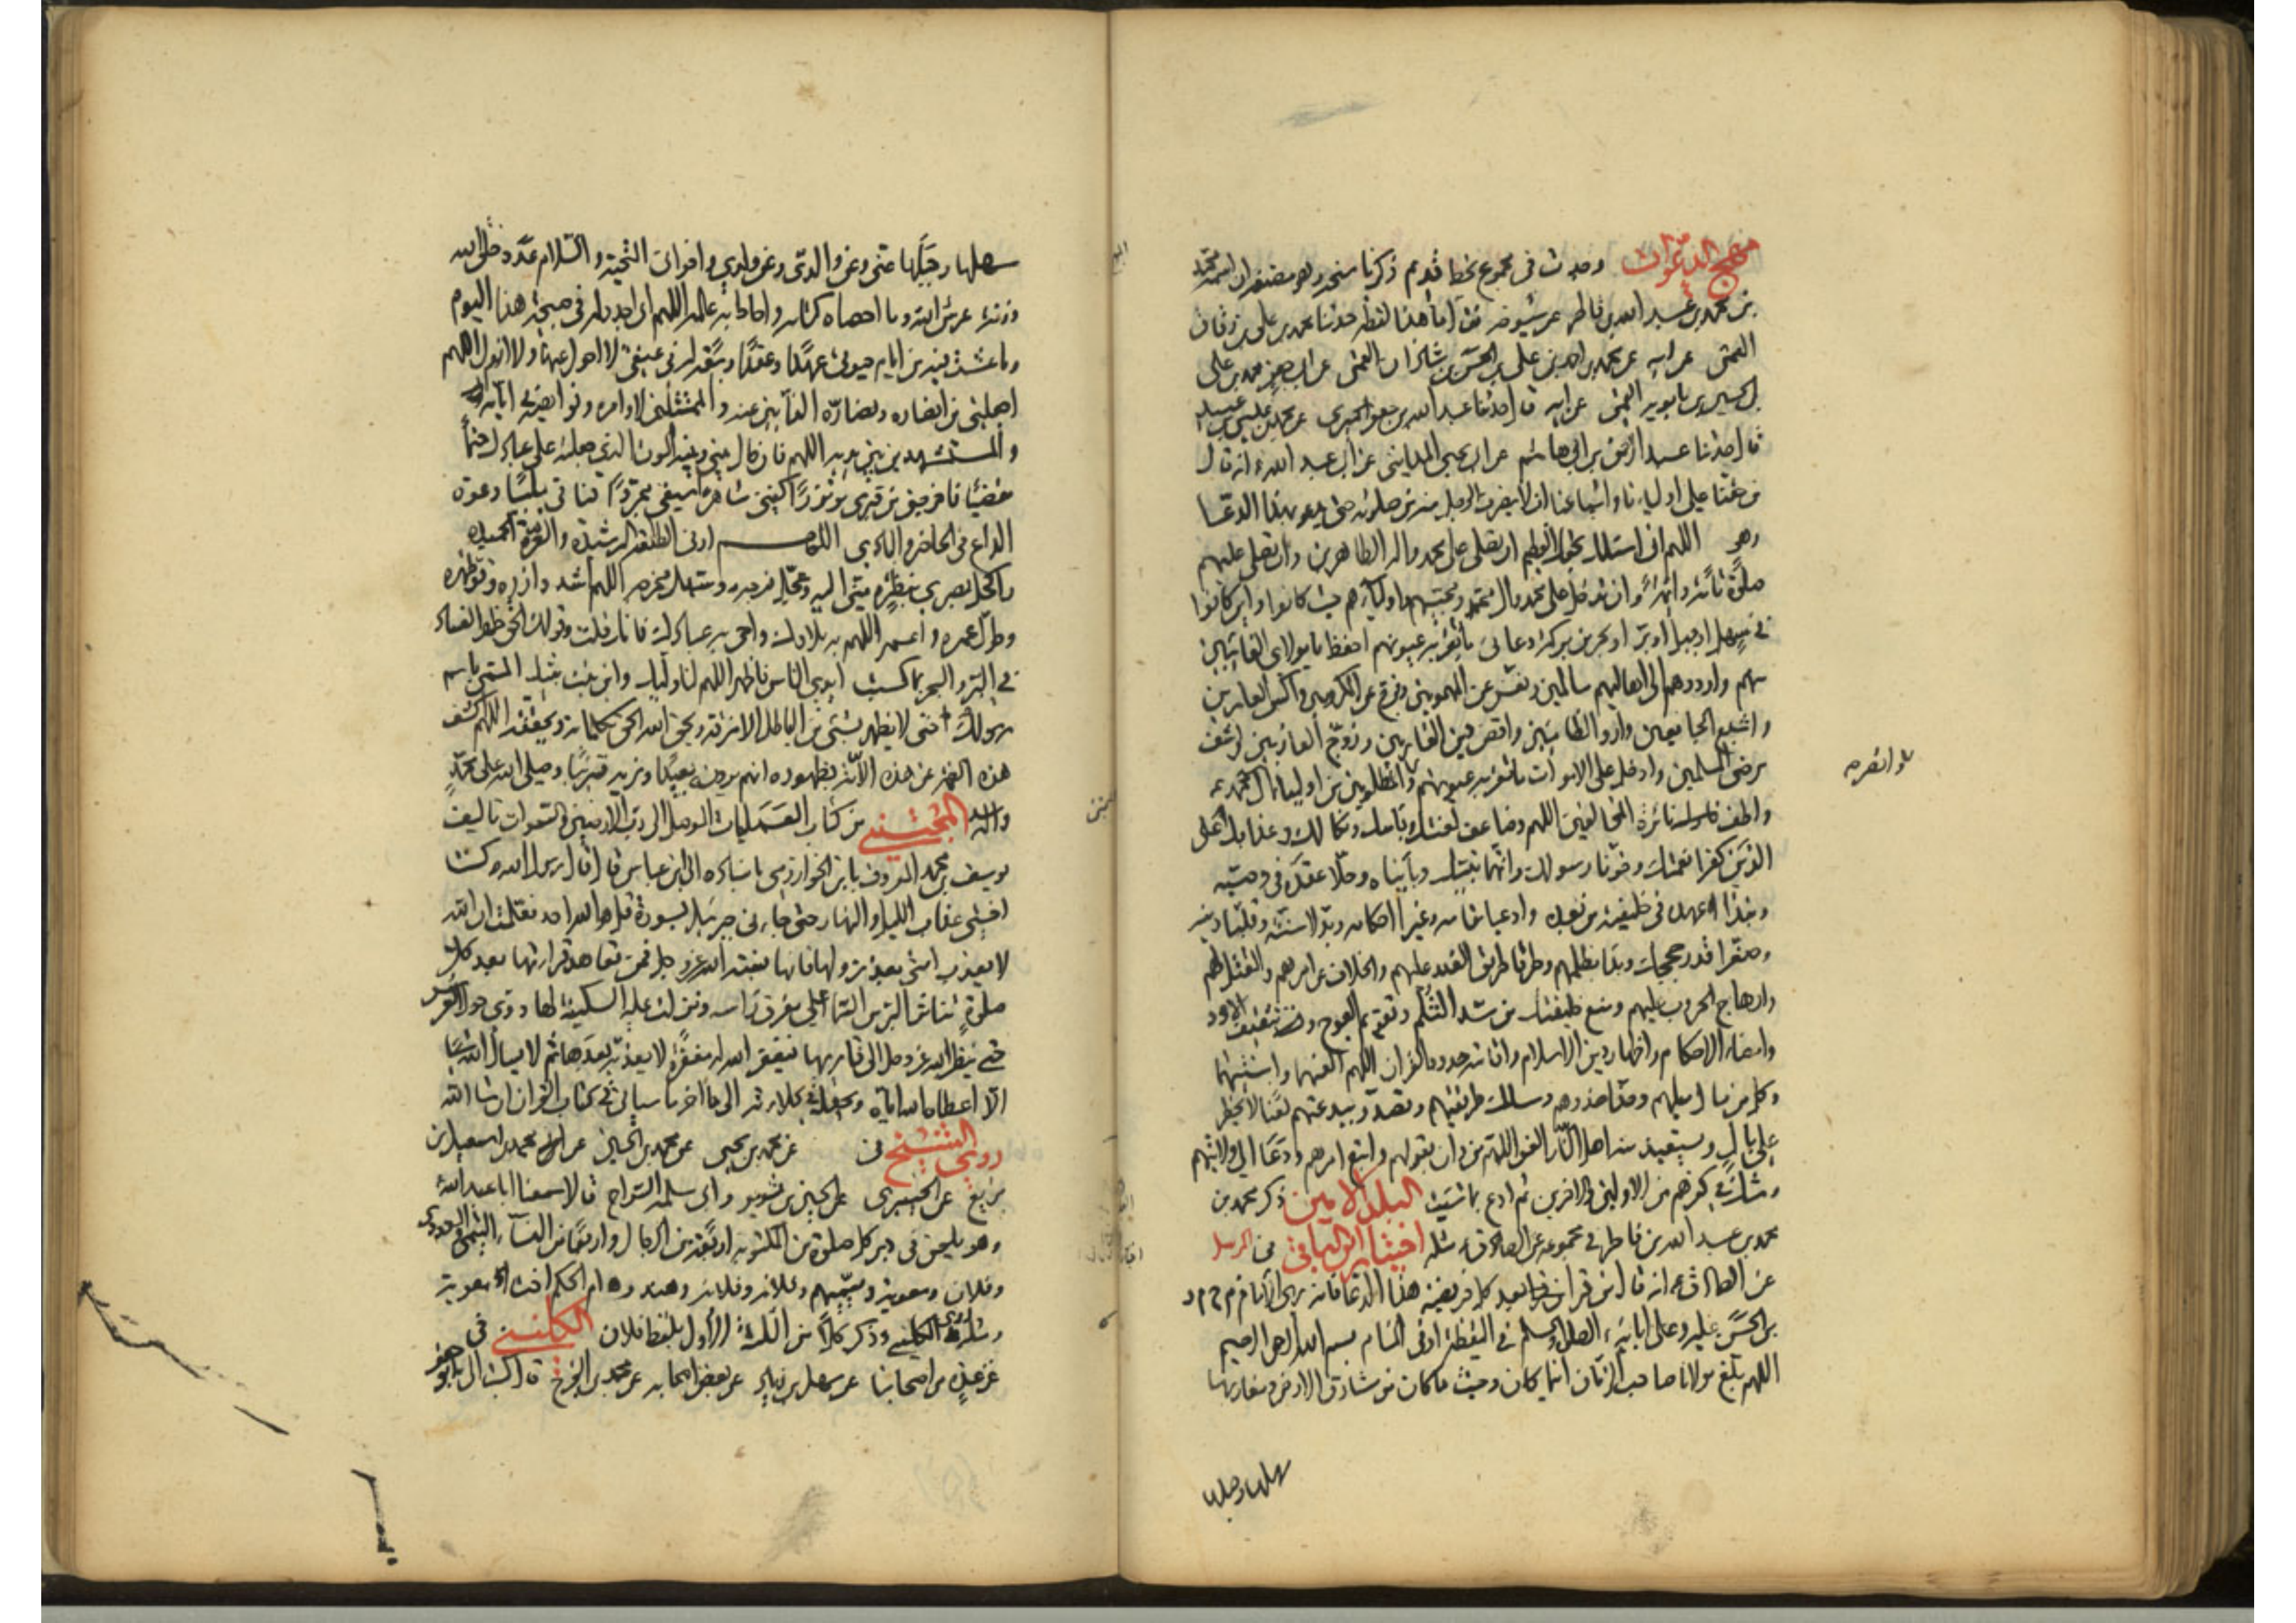 مهج الدعوات وجدت فى مجموع بخط قديم ذكر ناسخه وهو مصنفه ان اسمه محمد
بن محمد بن عبد الله بن فاطر عن شيوخه فقال ما هذا لفظه حدثنا محمد بن على بن دقاق
القمى عن ابيه عن محمد بن احمد بن على بن الحسن بن شاذان القمى عن ابى جعفر محمد بن على
بن الحسين بن بابويه القمى عن ابيه قال حدثنا عبد الله بن جعفر الحميرى عن محمد بن عيسى بن عبيد
قال حدثنا عبد الرحمن بن ابى هاشم عن ابى يحيى المداينى عن ابى عبد الله ع انه قال
من حقنا على اوليائنا واشياعنا ان لا ينصرف الرجل منهم من صلوته حتى يدعو بهذا الدعا
وهو اللهم انى اسئلك بحقك العظيم ان تصلى على محمد واله الطاهرين وان تصلى عليهم
صلوة تامة دائمة وان تدخل على محمد وال محمد ومحبيهم واوليائهم حيث كانوا واين كانوا
فى سهل او جبل او بر او بحر من بركة دعائى ما تقر به عيونهم احفظ يا مولاى الغائبين
منهم وارددهم الى اهاليهم سالمين ونفس عن المهمومين وفرج عن المكروبين واكس العارين
واشبع الجايعين وارو الظامئين واقض دين الغارمين وزوج العازبين واشف
مرضى المسلمين وادخل على الاموات ما تقر به عيونهم وانصر المظلومين من اولياء ال محمد ع
واطف نائرة المخالفين اللهم وضاعف لعنتك وبأسك ونكالك وعذابك على
الذين كفرا نعمتك وخونا رسولك واتهما نبيك وبايناه وحلا عقده فى وصيه
ونبذا عهده فى خليفته من بعده وادعيا مقامه وغيرا احكامه وبدلا سنته وقلبا دينه
وصغرا قدر حججك وبدءا بظلمهم وطرقا طريق الغدر عليهم والخلاف عن امرهم والقتل لهم
وارهاج الحروب عليهم ومنع خليفتك من سد الثلم وتقويم العوج وتثقيف الاود
وامضاء الاحكام واظهار دين الاسلام واقامة حدود القران اللهم العنهما وابنتيهما
وكل من مال ميلهم وحذا حذوهم وسلك طريقتهم وتصدر ببدعتهم لعنا لا يخطر
على بال ويستعيذ منه اهل النار العن اللهم من دان بقولهم واتبع امرهم ودعا الى ولايتهم
وشك فى كفرهم من الاولين والاخرين ثم ادع بما شئت البلد الامين ذكر محمد بن
محمد بن عبد الله بن فاطر فى مجموعه عن الصادق ع مثله اختيار ابن الباقى
عن الصادق ع انه قال من قرا بعد كل فريضة هذا الدعا فانه يرى الامام م ح م د
بن الحسن عليه وعلى ابائه الصلوة والسلم فى اليقظة او فى المنام بسم الله الرحمن الرحيم
اللهم بلغ مولانا صاحب الزمان اينما كان وحيث ما كان من مشارق الارض ومغاربها
سهلها وجبلها
سهلها وجبلها عنى وعن والدى وعن ولدى واخوانى التحية والسلام عدد خلق الله
وزنة عرش الله وما احصاه كتابه واحاط به علمه اللهم انى اجدد له فى صبيحة هذا اليوم
وما عشت فيه من ايام حيوتى عهدا وعقدا وبيعة له فى عنقى لا احول عنها ولا ازول اللهم
اجعلنى من انصاره ونصاره الذابين عنه والممتثلين لاوامره ونواهيه فى ايامه
والمستشهدين بين يديه اللهم فان حال بينى وبينه الموت الذى جعلته على عبادك حتما
مقضيا فاخرجنى من قبرى مؤتزرا كفنى شاهرا سيفى مجردا قناتى ملبيا دعوة
الداعى فى الحاضر والبادى اللهم ارنى الطلعة الرشيدة والغرة الحميدة
واكحل بصرى بنظرة منى اليه وعجل فرجه وسهل مخرجه اللهم اشدد ازره وقو ظهره
وطول عمره واعمر اللهم به بلادك واحى به عبادك فانك قلت وقولك الحق ظهر الفساد
فى البر والبحر بما كسبت ايدى الناس فاظهر اللهم لنا وليك وابن بنت نبيك المسمى باسم
رسولك حتى لا يظفر بشئ من الباطل الا مزقه ويحق الله الحق بكلماته ويحققه اللهم اكشف
هذه الغمة عن هذه الامة بظهوره انهم يرونه بعيدا ونريه قريبا وصلى الله على محمد
واله المجتنى من كتاب العمليات الموصلة الى رب الارضين والسموات تاليف
يوسف بن محمد المعروف بابن الخوارزمى باسناده الى ابن عباس قال قال رسول الله كنت
اخشى عذاب الليل والنهار حتى جاءنى جبرئيل بسورة قل هو الله احد فعلمت ان الله
لا يعذب امتى بعد نزولها فانها نسبة الله عز وجل فمن تعاهد قراءتها بعد كل
صلوة تناثر البر من السما على مفرق راسه ونزلت عليه السكينة لها دوى حول العرش
حتى ينظر الله عز وجل الى قاريها فيغفر الله له مغفرة لا يعذبه بعدها ثم لا يسأل الله شيئا
الا اعطاه اياه ويجعله فى كلاءته الى اخر ما سياتى فى كتاب القران ان شا الله
روى الشيخ فى عن محمد بن يحيى عن محمد بن الحسين عن محمد بن اسمعيل بن
بزيع عن الخيبرى عن الحسين بن ثوير وابى سلمة السراج قالا سمعنا ابا عبد الله ع
وهو يلعن فى دبر كل صلوة من المكتوبة اربعة من الرجال واربعا من النساء التيمى والعدوى
وفلان ومعوية ويسميهم وفلانة وفلانة وهند وام الحكم اخت معوية
وروى الكلينى مثله وذكر كلا من الثلثة الاول بلفظ فلان الكلينى فى
عن عدة من اصحابنا عن سهل بن زياد عن بعض اصحابه عن محمد بن الفرج قال كتب الى ابو جعفر